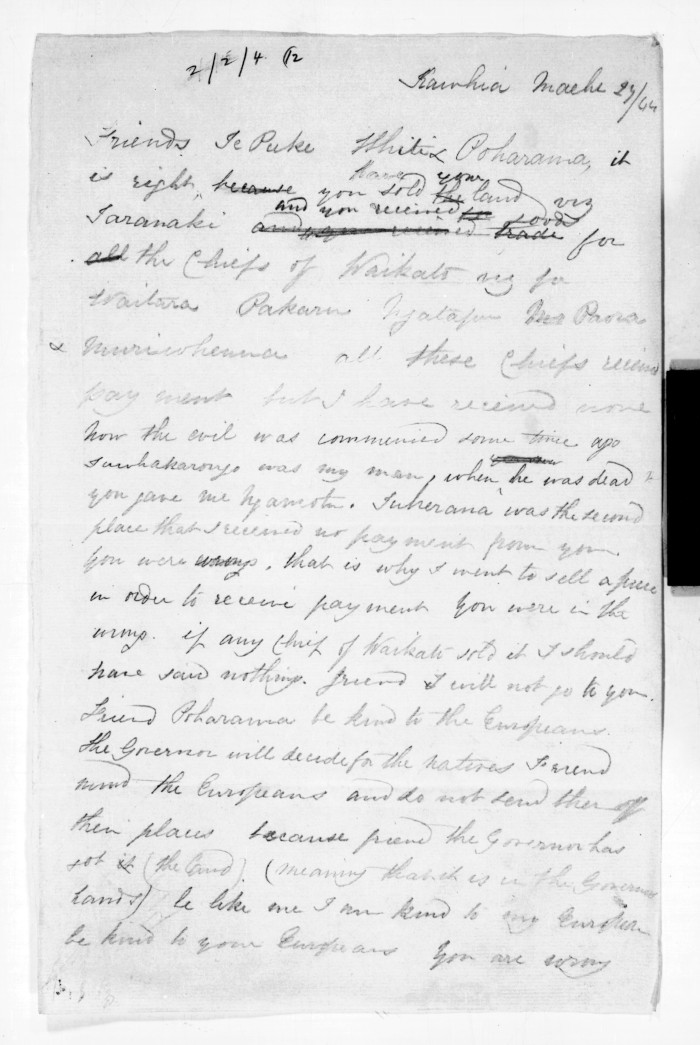 2/2/4 12
Kawhia Mache 27/44
Friends. Te Puke Whiti & Poharama, it
have your
is right, because you sold the land viz
and you received the goods
Taranaki and you received trade for
all the Chiefs of Waikato viz
Waitara Pakaru Ngatapu Paora
& Muriwhenua all these Chiefs received
payment but I have received none
Now the evil was commenced some time ago
Tuwhakarongo was my man, when he was dead
you gave me Ngamotu. Tuherana was the second
place that I received no payment from you.
You were wrong, that is why I went to sell a piece
in order to receive payment You were in the
wrong. if any Chief of Waikato sold it I should
have said nothing. Friend I will not go to you.
Friend Poharama be kind to the Europeans.
the Governor will decide for the natives Friend
mind the Europeans and do not send them off
their places because friend the Governor has
got it (the land). (meaning that it is in the Governors
hands) be like me I am kind to my European
be kind to your Europeans You are wrong